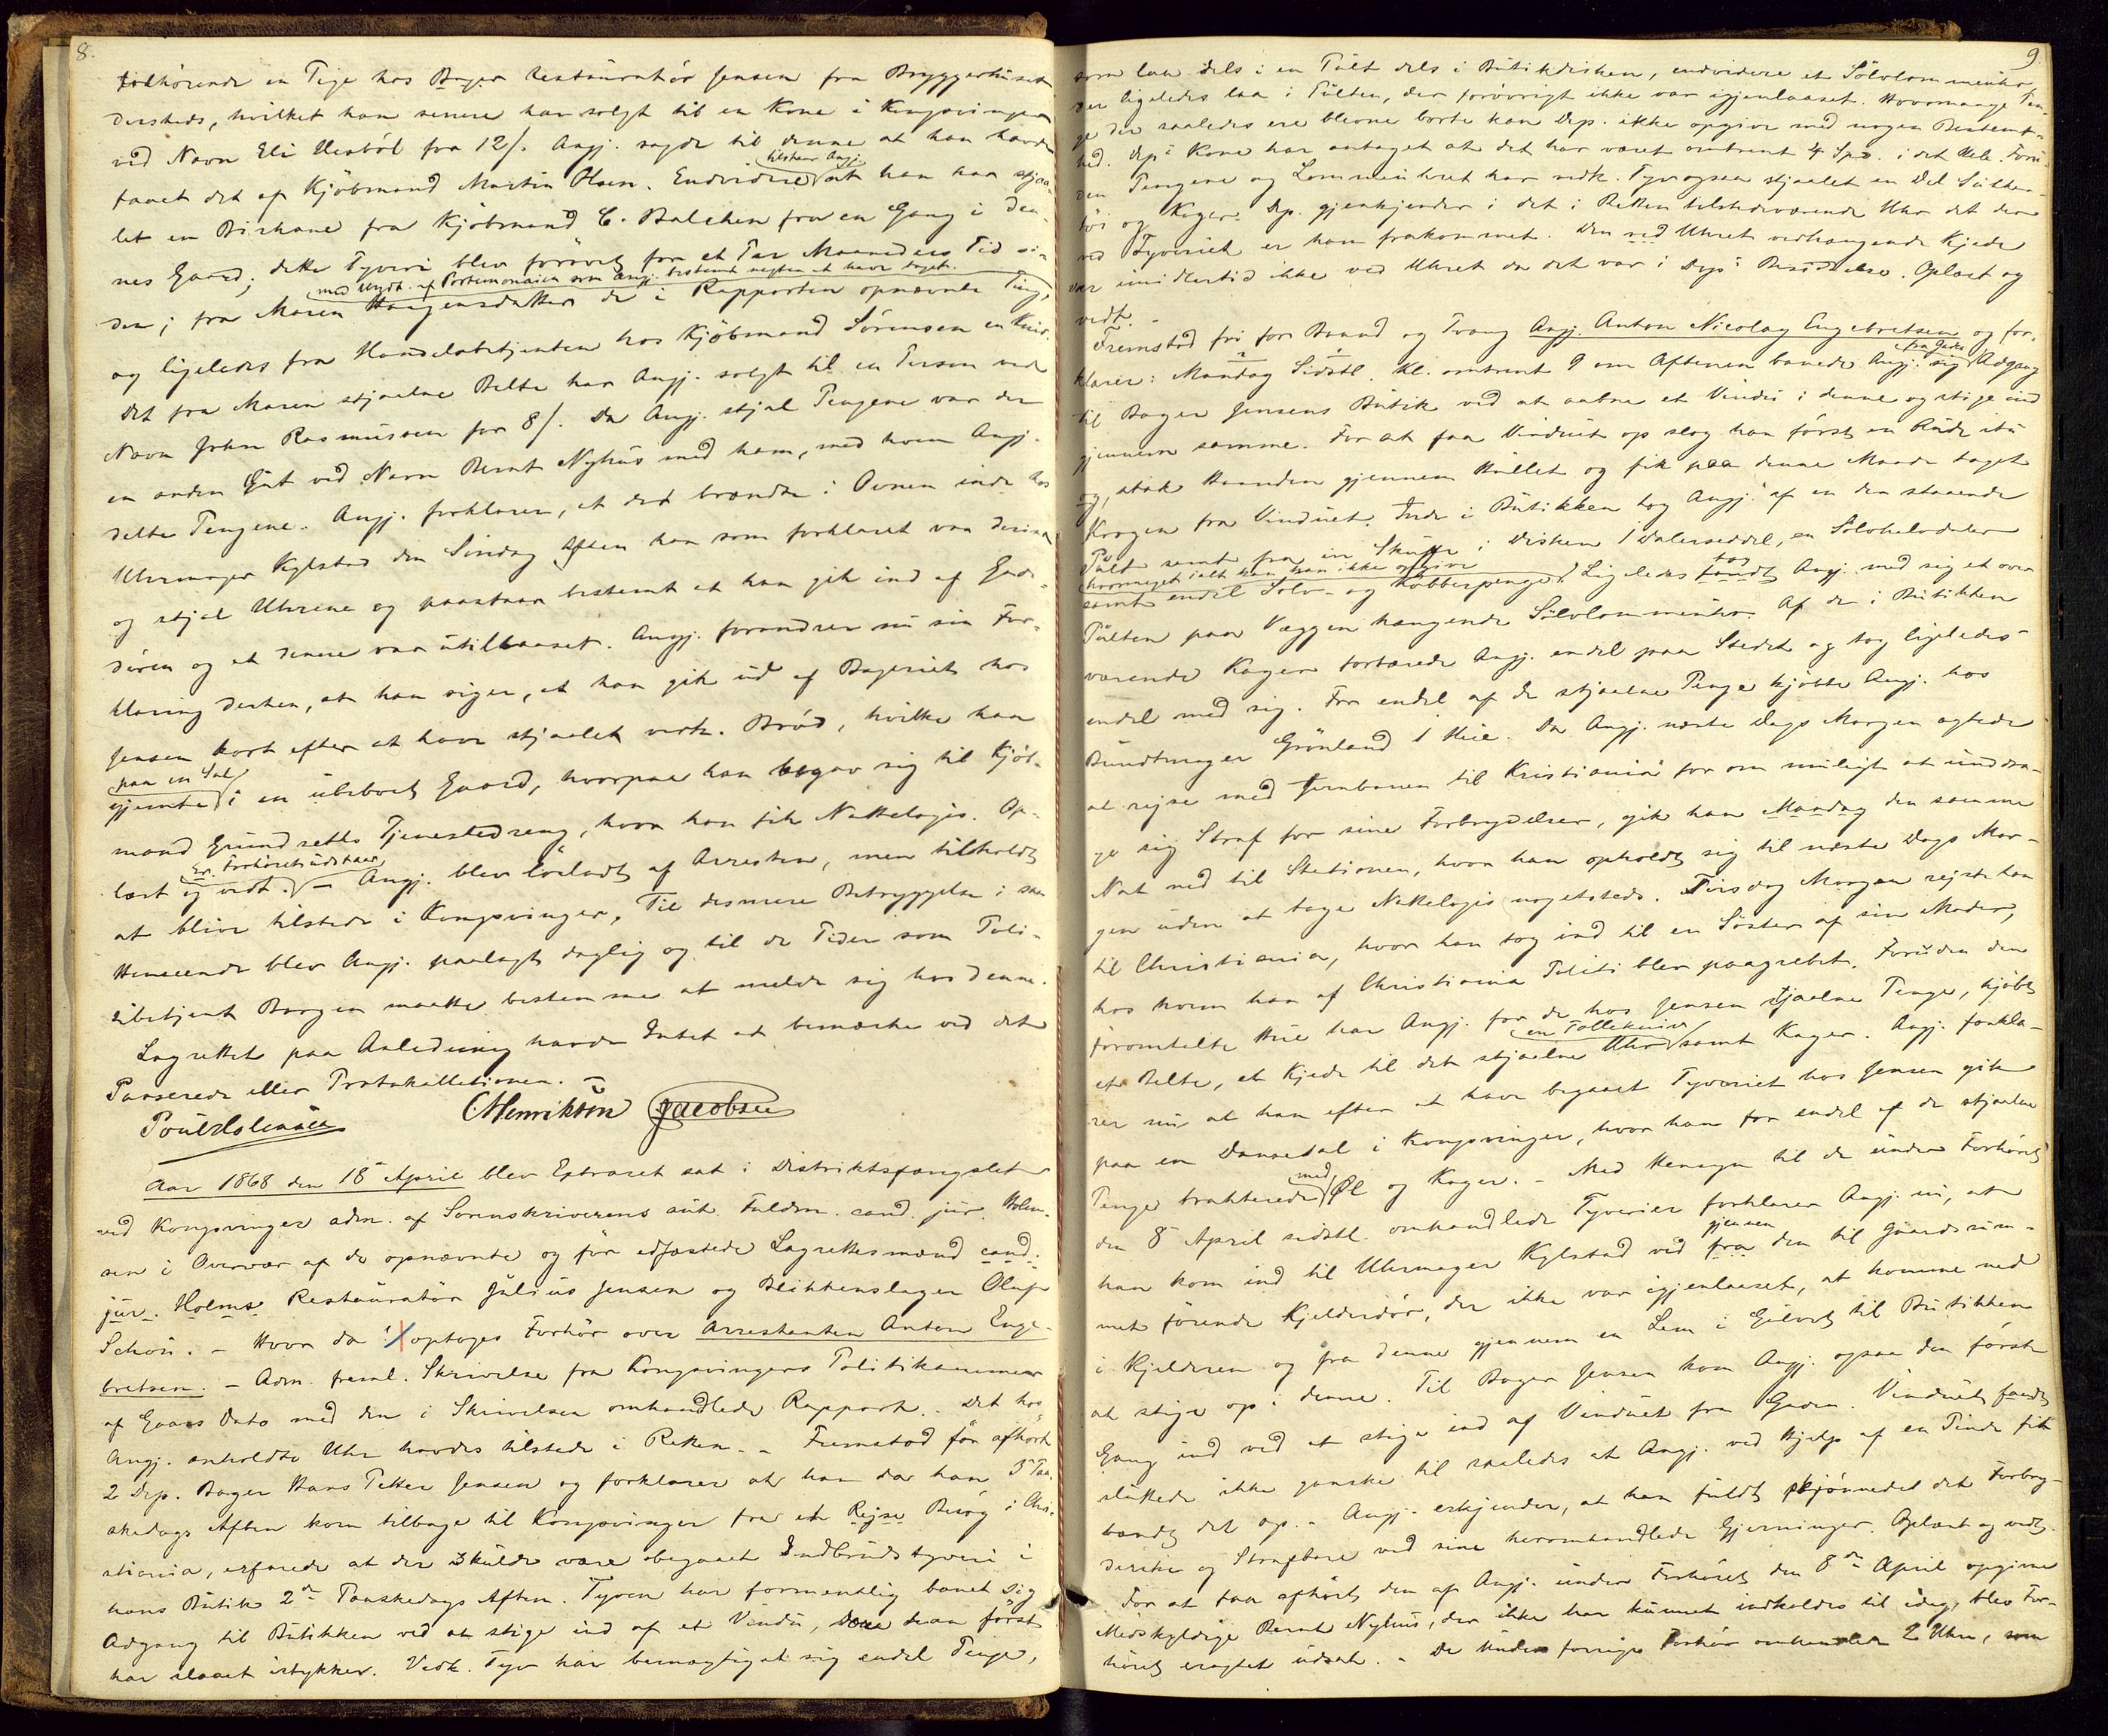 8.
tilhörende en Pige hos Bager Restauratör Jensen fra Bryggerhuset
dersteds, hvilket han senere har solgt til en Kone i Kongsvinger
ved Navn Eli Uesböl for 12/. Angj. sagde til denne at han havde
faaet det af Kjöbmand Martin Olsen. Endvidere tilstaar Angj. at han har stjaa-
let en Birkane fra Kjöbmand C. Balchen fra en Gang i den-
nes Gaard; dette Tyveri blev forövet for et Par Maaneders Tid si-
den; fra Maren Haagensdatter de i Rapporten opnævnte Ting,
med Undt. af Portemonaien som Angj. bestemt negter at have taget.
og ligeledes fra Handelsbetjenten hos Kjöbmand Sörensen en Kniv.
Det fra Maren stjaalne Belte har Angj. solgt til en Person ved
Navn John Rasmussen for 8/. Da Angj. stjal Pengene var der
en anden Gut ved Navn Bernt Nyhus med ham, med hvem Angj.
delte Pengene. Angj. forklarer, at det brændte i Ovnen inde hos
Uhrmager Kylstad den Söndag Aften han som forklaret var derinde
og stjal Uhrene og paastaar bestemt at han gik ind af Gade-
dören og at denne var utillaaset. Angj. forandrer nu sin For-
klaring derhen, at han siger, at han gik ud af Bageriet hos
Jensen kort efter at have stjaalet vedk. Bröd, hvilke han
gjemte paa en Sal i en ubeboet Gaard, hvorpaa han begav sig til Kjöb-
mand Grundsetts Tjenestedreng, hvor han fik Nattelogis. Op-
læst og vedt. Er. Forhöret udstaar – Angj. blev lösladt af Arresten, men tilholdt
at blive tilstede i Kongsvinger. Til desmere Betryggelse i saa
Henseende blev Angj. paalagt daglig og til de Tider som Poli-
tibetjent Borgen maatte bestemme at melde sig hos denne.
Lagrettet paa Anledning havde Intet at bemærke ved det
Passerede eller Protokollationen. –
Poul Holmsen CHenriksen Jacobsen
Aar 1868 den 18 April blev Extraret sat i Distriktsfængslet
ved Kongsvinger adm. af Sorenskriverens aut. Fuldm. cand. jur. Holm-
sen i Overvær af de opnævnte og för edfæstede Lagrettesmænd cand.
jur. Holms Restauratör Julius Jensen og Blikkenslager Oluf
Schou. – Hvor da optoges Forhör over Arrestanten Anton Enge-
bretsen. – Adm. freml. Skrivelse fra Kongsvingers Politikammer
af Gaars Dato med den i Skrivelsen omhandlede Rapport. Det hos
Angj. anholdte Uhr havdes tilstede i Retten. – Fremstod för afhört
2 Dep. Bager Hans Petter Jensen og forklarer at han da han 3 Paa-
skedags Aften kom tilbage til Kongsvinger fra et Rejse Besög i Chri-
stiania, erfarede at der skulde være begaaet Indbrudstyveri i
hans Butik 2den Paaskedags Aften. Tyven har formentlig banet sig
Adgang til Butikken ved at stige ind af et Vindu, som han först
har slaaet istykker. Vedk. Tyv har bemægtiget sig endel Penge,
9.
som laa dels i en Pult dels i Butikdisken, endvidere et Sölvlommeuhr
der ligeledes laa i Pulten, der forövrigt ikke var igjenlaaset. Hvormange Pen-
ge der saaledes ere blevne borte kan Dep. ikke opgive med nogen Bestemt-
hed. Dep's Kone har antaget at det har været omtrent 4 Spd. i det Hele. Foru-
den Pengene og Lommeuhret har vedk. Tyv ogsaa stjaalet en Del Sukker-
töi og Kager. Dep. gjenkjender i det i Retten tilstedeværende Uhr det der
ved Tyveriet er ham frakommet. Den ved Uhret vedhængende Kjede
var imidlertid ikke ved Uhret da det var i Dep's Besiddelse. Oplæst og
vedt. –
Fremstod fri for Baand og Tvang Angj. Anton Nicolay Engebretsen og for-
klarer: Mandag Sidstl. Kl. omtrent 9 om Aftenen banede Angj. sig fra Gaden Adgang
til Bager Jensens Butik ved at aabne et Vindu i denne og stige ind
gjennem samme. For at faa Vinduet op slog han först en Rude itu
og stak Haanden gjennem Hullet og fik paa denne Maade taget
Krogen fra Vinduet. Inde i Butikken tog Angj. af en der staaende
Pult samt fra en Skuffe i Disken 1 Dalerseddel, en Sölvhalvdaler
samt endel Sölv- og Kobberpenge, hvormeget ialt kan han ikke opgive. Ligeledes tog Angj. med sig et over
Pulten paa Væggen hængende Sölvlommeuhr. Af de i Butikken
værende Kager fortærede Angj. endel paa Stedet og tog ligeledes
endel med sig. For endel af de stjaalne Penge kjöbte Angj. hos
Bundtmager Grönland 1 Hue. Da Angj. næste Dags Morgen agtede
at rejse med Jernbanen til Kristiania for om muligt at unddra-
ge sig Straf for sine Forbrydelser, gik han Mandag den samme
Nat ned til Stationen, hvor han opholdt sig til næste Dags Mor-
gen uden at tage Nattelogis nogetsteds. Tirsdag Morgen rejste han
til Christiania, hvor han tog ind til en Söster af sin Moder,
hos hvem han af Christiania Politi blev paagrebet. Foruden den
föromtalte Hue har Angj. for de hos Jensen stjaalne Penge, kjöbt
et Belte, et Kjede til det stjaalne Uhr en Tollekniv samt Kager. Angj. forkla-
rer nu at han efter at have begaaet Tyveriet hos Jensen gik
paa en Dansesal i Kongsvinger, hvor han for endel af de stjaalne
Penge trakterede med Öl og Kager. – Med Hensyn til de under Forhöret
den 8 April sidstl. omhandlede Tyverier forklarer Angj. nu, at
han kom ind til Uhrmager Kylstad ved gjennem fra den til Gaardsrum-
met förende Kjelderdör, der ikke var igjenlaaset, at komme ned
i Kjelderen og fra denne gjennem en Lem i Gulvet til Butikken
at stige op i denne. Til Bager Jensen kom Angj. ogsaa den förste
Gang ind ved at stige ind af Vinduet fra Gaden. Vinduet fandt
sluttede ikke ganske til saaledes at Angj. ved Hjelp af en Pinde fik
bændt det op. – Angj. erkjender, at han fuldt skjönnedet det Forbry-
deriske og Strafbare ved sine heromhandlede Gjerninger. Oplæst og vedt.
For at faa afhört den af Angj. under Forhöret den 8de April opgivne
Medskyldige Bernt Nyhus, der ikke har kunnet indkaldes til idag, blev For-
höret eragtet udsat. – De under forrige Forhör omhandlede 2 Uhre, som